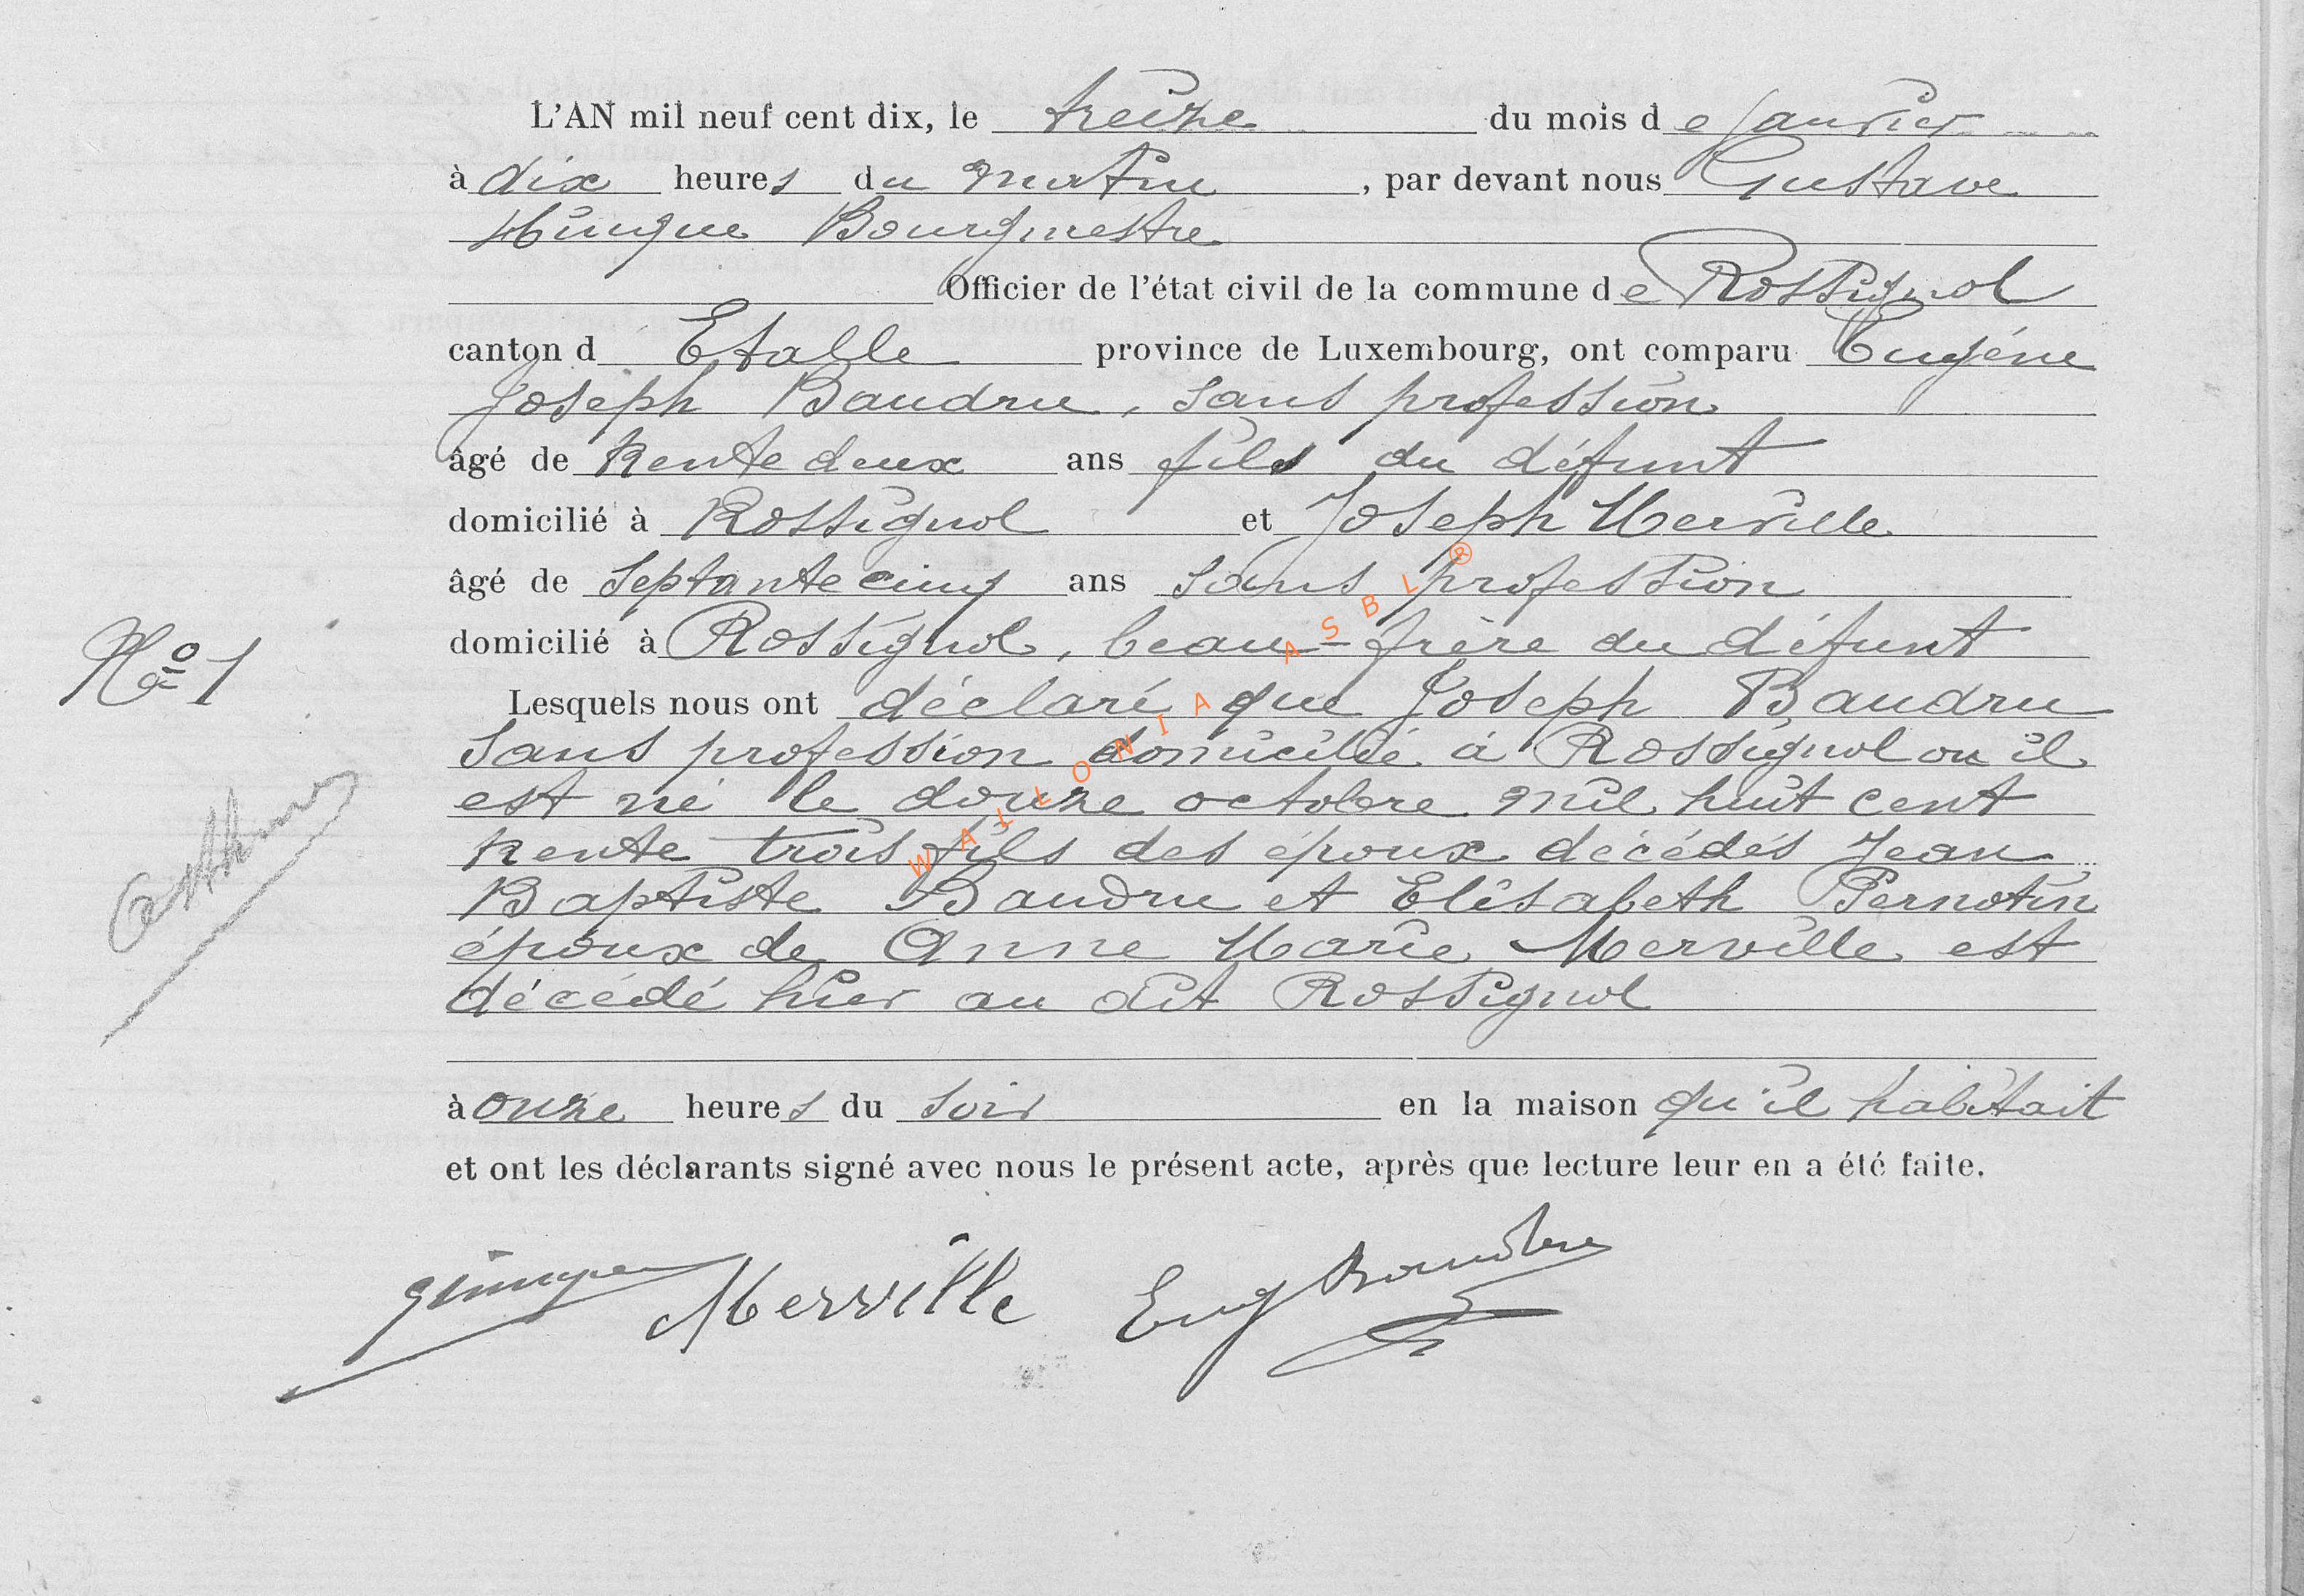 L'AN mil neuf cent dix, le treize du mois de Janvier
à dix heures du matin, par devant nous Gustave
Hurieaux Bourgmestre
Officier de l'état civil de la commune de Rossignol
canton d Etalle province de Luxembourg, ont comparu Eugéne
Joseph Baudru, sans profession
âgé de trente deux ans fils du défunt
domicilié à Rossignol et Joseph Merville
âgé de septante cinq ans sans profession
N° 1
domicilié à Rossignol, beau-frère du défunt
Lesquels nous ont déclaré que Joseph Baudru
sans profession domicilié à Rossignol ou il
est né le douze octobre mil huit cent
trente trois fils des époux décédés Jean
Baptiste Baudru et Elisabeth Pernotin
époux de Anne Marie Merville est
décédé hier au dit Rossignol
à onze heures du soir en la maison qu'il habitait
et ont les déclarants signé avec nous le présent acte, après que lecture leur en a été faite.
Merville Eug Baudru
WALLONIA ASBL ®